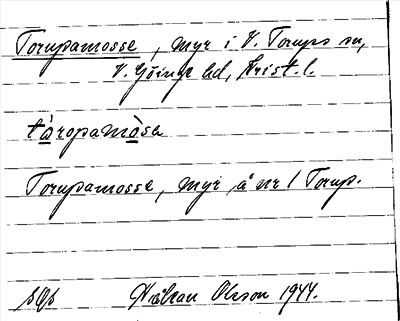 Torupamosse, myr i V. Torups sn,
V. Göinge hd, Krist. l.
tàropamòsa
Torupamosse, myr å nr 1 Torup.
Håkan Olsson 1944.